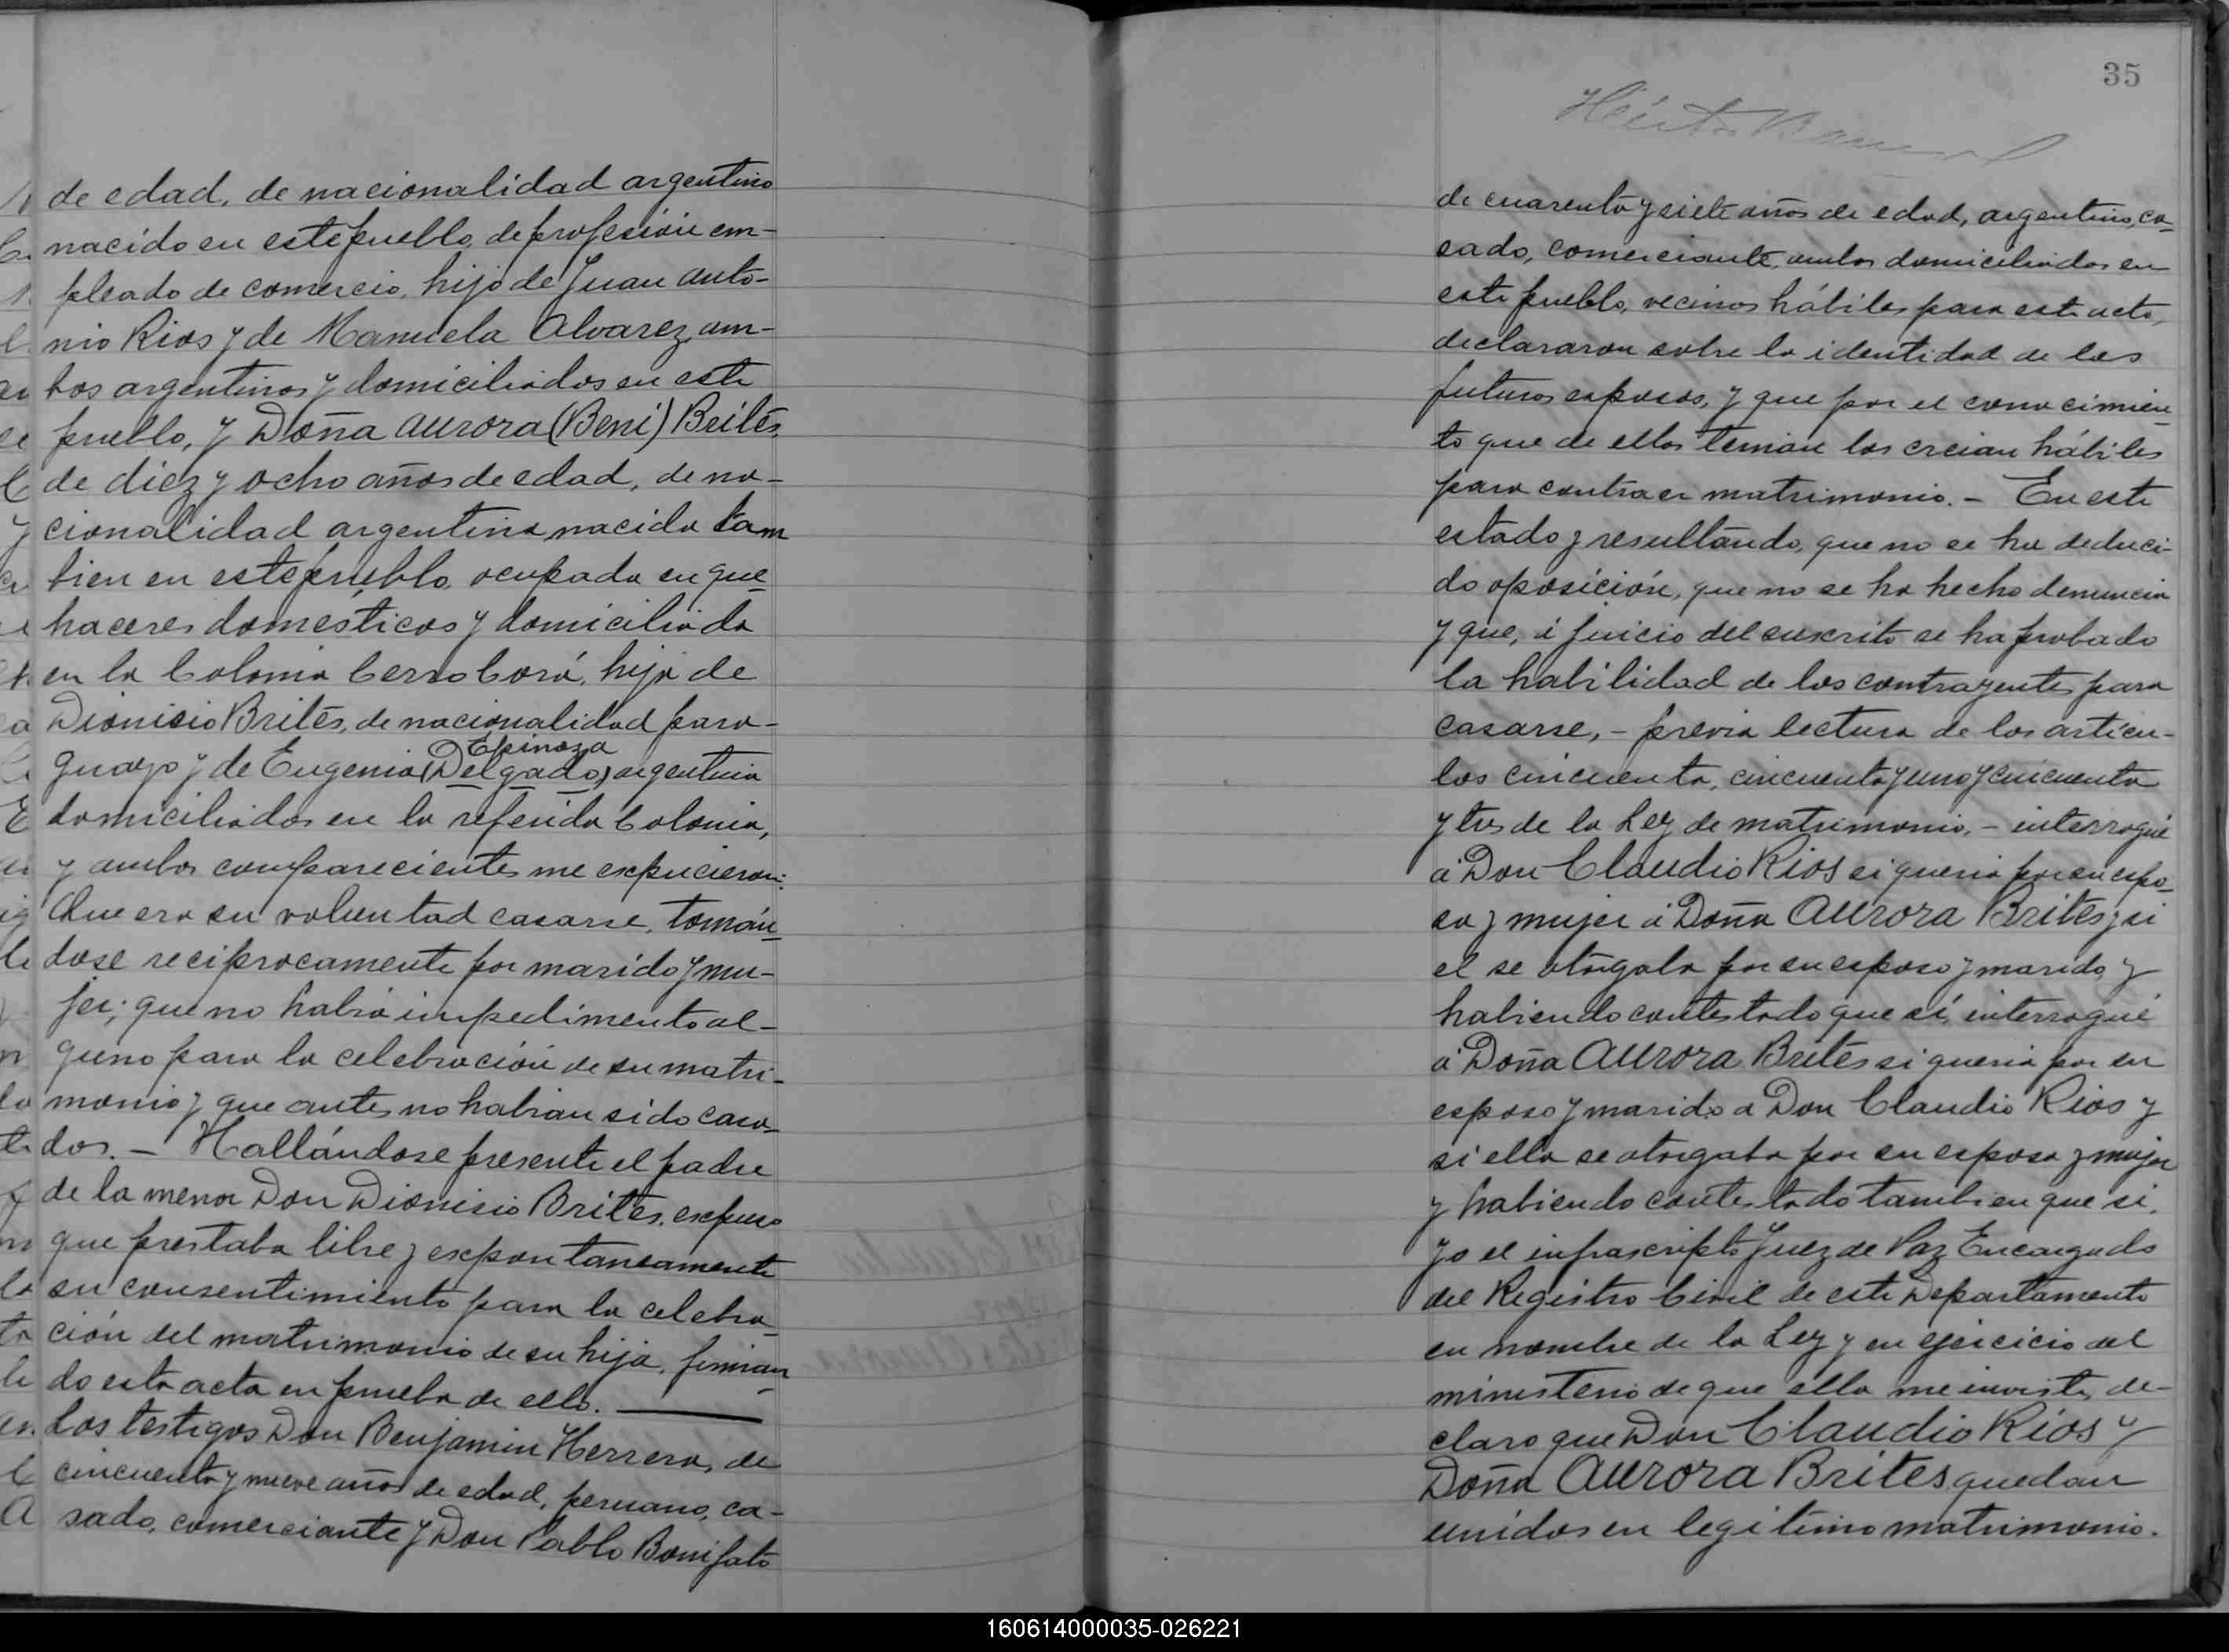 de edad, de nacionalidad argentino
nacido en este pueblo, de profesión em-
pleado de comercio, hijo de Juan Anto-
nio Rios y de Manuela Alvarez, am-
bos argentinos y domiciliados en este
pueblo, y Doña Aurora (Beni) Brites,
de diez y ocho años de edad, de na-
cionalidad argentina, nacida tam
bien en este pueblo, ocupada en que-
haceres domesticos y domiciliada
en la Colonia Cerro Corá, hija de
Dionisio Brites, de nacionalidad para-
Espinoza
guayo y de Eugenia (Delgado) argentina
domiciliados en la referida Colonia,
y ambos comparecientes me expucieron:
Que era su voluntad casarse, tomán-
dose reciprocamente por marido y mu-
jer; que no habia impedimento al-
guno para la celebración de su matri-
monio y que antes no habian sido casa-
dos. - Hallándose presente el padre
de la menor Don Dionisio Brites, expuso
que prestaba libre y expontaneamente
su consentimiento para la celebra-
ción del matrimonio de su hija, firman-
do esta acta en prueba de ello.
Los testigos Don Benjamin Herrera, de
cincuenta y nueve años de edad, peruano, ca-
sado, comerciante y Don Pablo Bonifato
35
de cuarenta y siete años de edad, argentino, ca-
sado, comerciante, ambos domiciliados en
este pueblo, vecinos hábiles para este acto,
declararon sobre la identidad de los
futuros esposos, y que por el conocimien-
to que de ellos tenian los creian hábiles
para contraer matrimonio. - En este
estado y resultando, que no se ha deduci-
do oposición, que no se ha hecho denuncia
y que, á juicio del suscrito se ha probado
la habilidad de los contrayentes para
casarse, - previa lectura de los articu-
los cincuenta, cincuenta y uno y cincuenta
y tres de la Ley de matrimonio, - interrogué
á Don Claudio Rios si queria por su espo-
sa y mujer á Doña Aurora Brites y si
el se otorgaba por su esposo y marido y
habiendo contestado que sí, interrogué
á Doña Aurora Brites si queria por su
esposo y marido a Don Claudio Rios y
si ella se otorgaba por su esposa y mujer
y habiendo contestado tambien que si,
yo el infrascripto Juez de Paz Encargado
del Registro Civil de este Departamento
en nombre de la Ley y en ejercicio del
ministerio de que ella me inviste, de-
claro que Don Claudio Rios y
Doña Aurora Brites quedan
unidos en legitimo matrimonio.
160614000035-026221